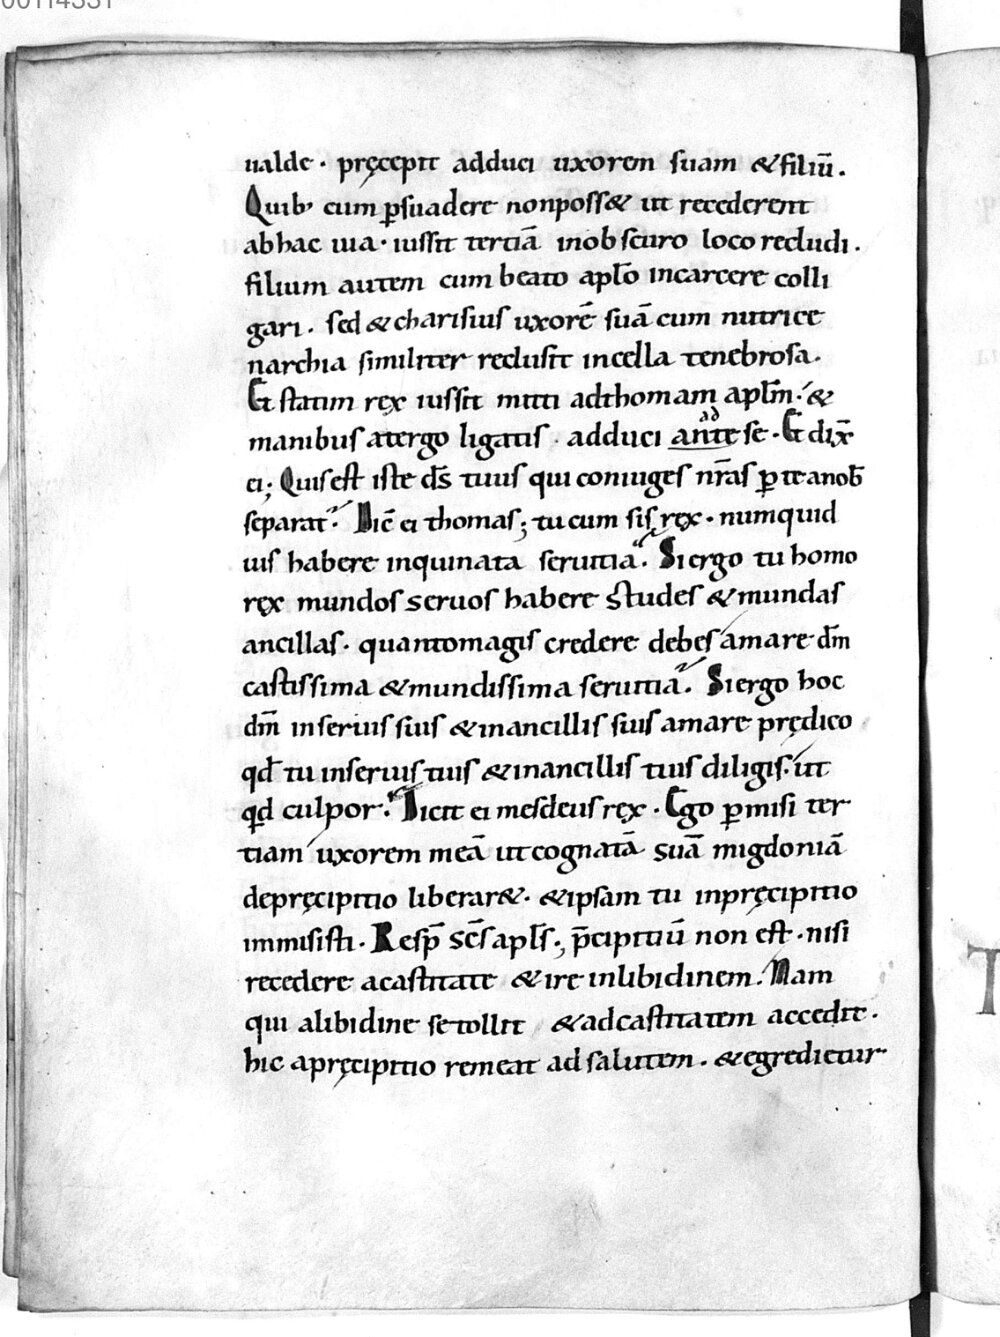 00114331
ualde · pręcepit adduci uxorem suam &filiū.
Quib; cum p̱suadere nonposs& ut recederent
abhac uia · iussit terciā inobscuro loco recludi .
filium autem cum beato apło incarcere colli
gari . sed &charisius uxorē suā cum nutrice
narchia similiter reclusit incella tenebrosa .
Et statim rex iussit mitti adthomam aplm̄ · &
manibus atergo ligatis · adduci ante ad se · Et dix̄
ei; Quis est iste d̄s tuus qui coniuges nr̄as ꝑ te anob̄
separat? Dic̄ ei thomas; tu cum sis rex · numquid
uis habere inquinata seruitia? Si ergo tu homo
rex mundos seruos habere studes &mundas
ancillas · quantomagis credere debes amare dm̄
castissima &mundissima seruitia? Si ergo hoc
dm̄ inseruis suis &inancillis suis amare prędico
qd̄ tu inseruis tuis &inancillis tuis diligis · ut
qd culpor? Dicit ei mesdeus rex · Ego ꝑmisi ter
tiam uxorem meā ut cognatā suā migdoniā
depręcipitio liberar& · &ipsam tu inpręcipitio
immisisti · Resp̄ sc̄s apls̄ ; p̄cipitiū non est · nisi
recedere acastitate &ire inlibidinem . Nam
qui alibidine se tollit &adcastitatem accedit .
hic apręcipitio remeat ad salutem . &egredietur
T